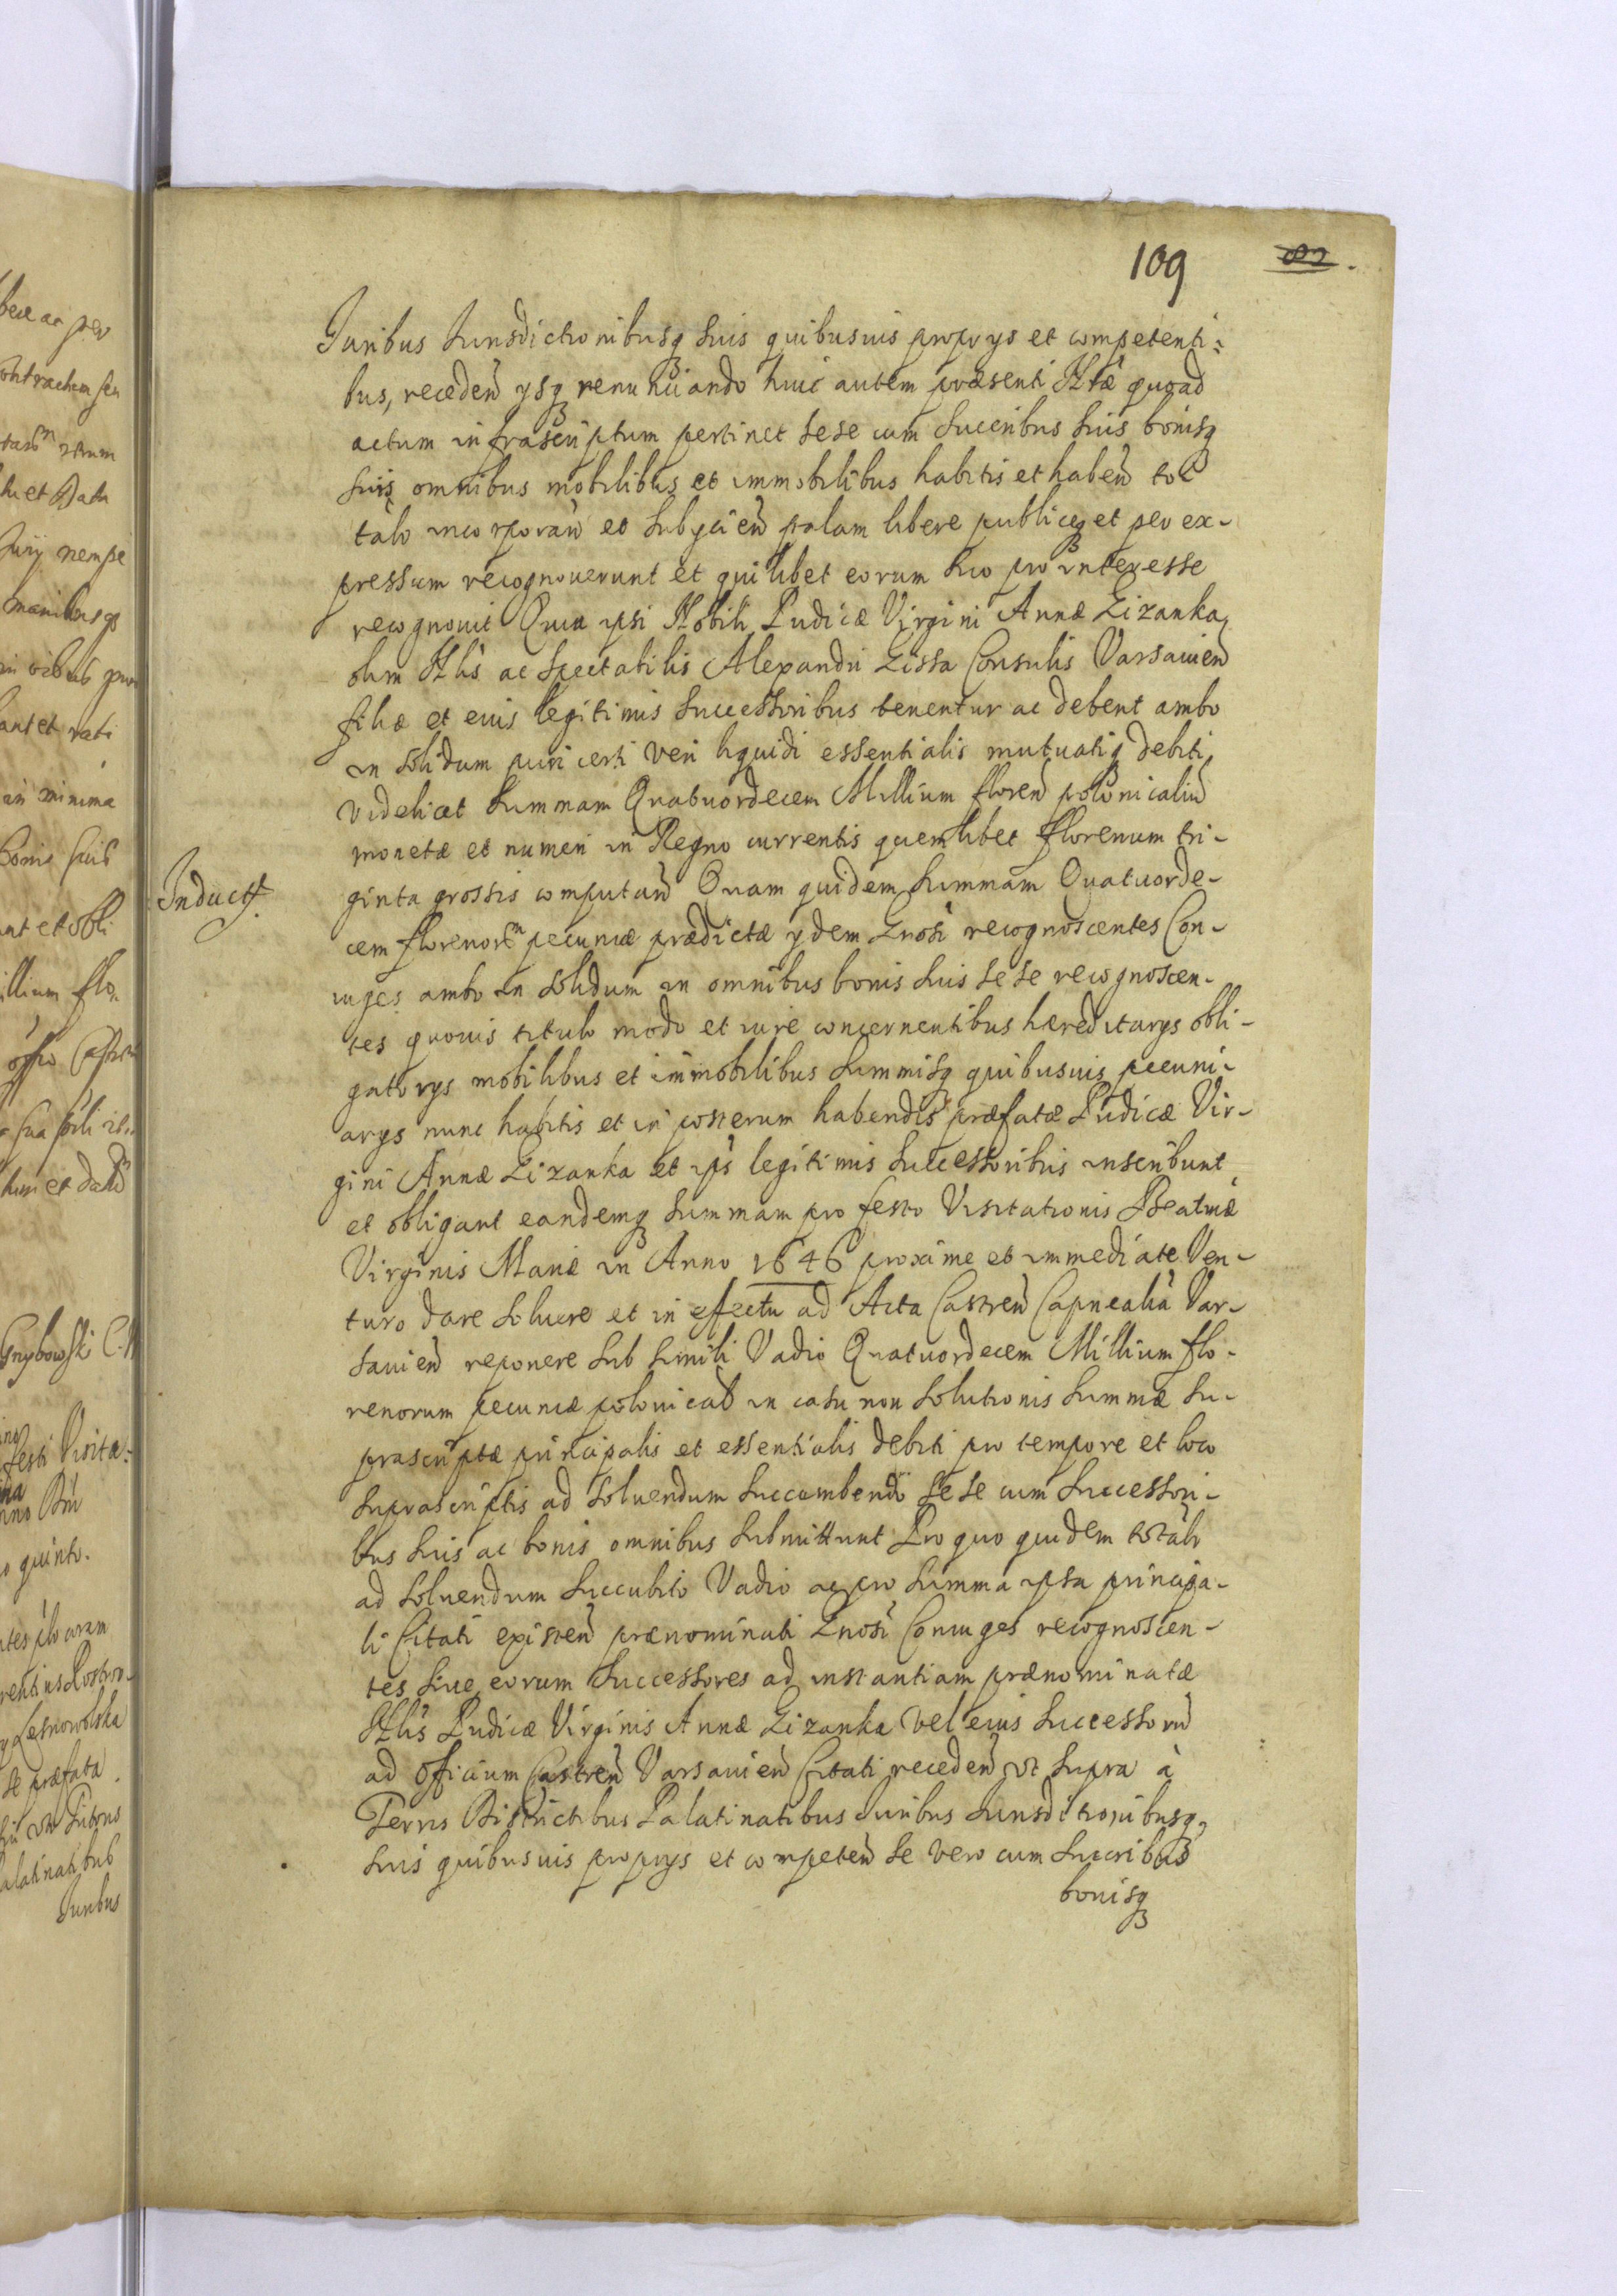 109
82.
Juribus Jurisdictionibusq suis quibusuis proprys et competenti-
bus, receden ysq renunciando huic autem præsenti quoad
actum infrascriptum pertinet sese cum succribus suis bonisq
suis omnibus mobilibus et immobilibus habitis et haben tot
talr incorporan et subycien palam libere publiceq et per ex-
pressum recognouerunt et quilibet eorum suo pro interesse
recognouit Quia ipsi Nobili Pudicæ Virgini Annæ Gizanka
olim Nlis ac Spectabilis Alexandri Gissa Consulis Varsauien
filiæ et eius legitimis successoribus tenentur ac debent ambo
in solidum puri certi veri liquidi essentialis mutuatiq debiti
videlicet summam Quatuordecem Millium floren polonicaliu
monetæ et numeri in Regno currentis quemlibet florenum tri-
Induct.
ginta grossis computan Quam quidem summam Quatuorde-
cem florenor pecuniæ prædictæ ydem Gnosi recognoscentes Con-
iuges ambo in solidum in omnibus bonis suis sese recognoscen-
tes quouis titulo modo et iure concernentibus hæreditarys obli-
gatorys mobilibus et immobilibus summisq quibusuis pecuni-
arys nunc habitis et in posterum habendis præfatæ Pudicæ Vir-
gini Annæ Gizanka et ips legitimis successoribus inscribunt
et obligant eandemq summam pro festo Visitationis Beatiæ
Virginis Mariæ in Anno 1646 proxime et immediate Ven-
turo dare soluere et in effectu ad Acta Castren Capnealia Var-
sauien reponere sub simili Vadio Quatuordecem Millium flo-
renorum pecuniæ polonical in casu non solutionis summæ su-
prascriptæ principalis et essentialis debiti pro tempore et loco
suprascriptis ad soluendum succumbendo sese cum successori-
bus suis ac bonis omnibus submittunt Pro quo quidem totali
ad soluendum succubito Vadio ac pro summa ipsa principa-
li Citati existen prænominati Gnosi Coniuges recognoscen-
tes siue eorum successores ad instantiam prænominatæ
Nlis Pudicæ Virginis Annæ Gizanka vel eius successoru
ad Officium Castren Varsauien Citati receden ut supra à
Terris Districtibus Palatinatibus Juribus Jurisditionibusq
suis quibusuis proprys et competen se vero cum succribus
bonisq